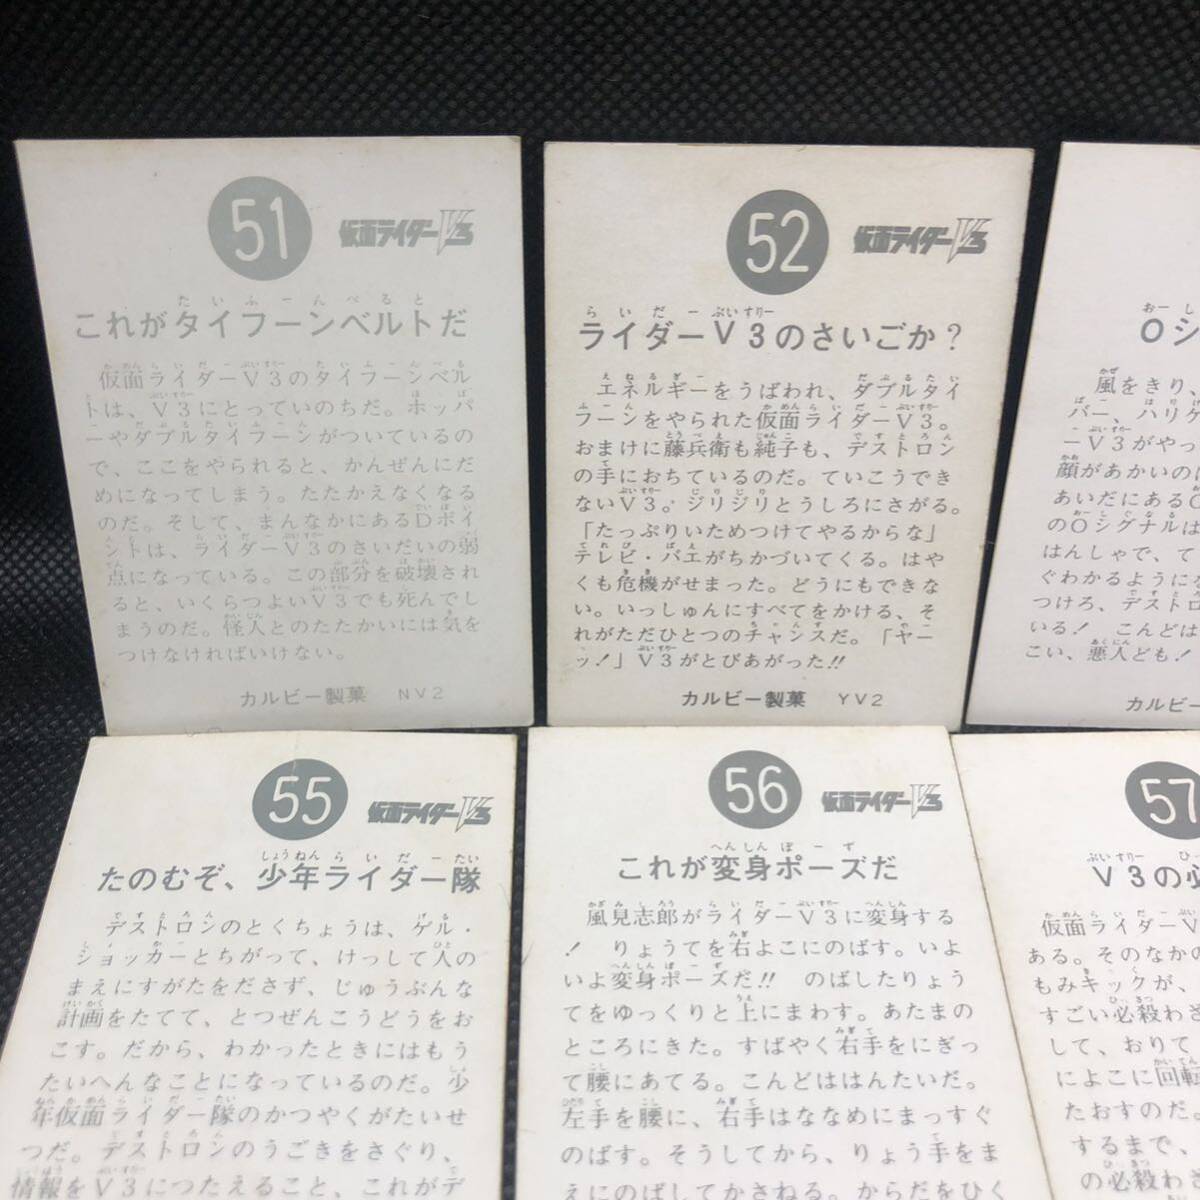 51
仮面ライダーV3
たいふーんべると
これがタイフーンベルトだ
仮面ライダーV3のタイフーンベル
トは、V3にとっていのちだ。ホッパ
ーやダブルタイフーンがついているの
で、ここをやられると、かんぜんにだ
めになってしまう。たたかえなくなる
のだ。そして、まんなかにあるDポイ
ントは、ライダーV3のさいだいの弱
点になっている。この部分を破壊され
ると、いくらつよいV3でも死んでし
まうのだ。怪人とのたたかいには気を
つけなければいけない。
カルビー製菓 NV2
52
仮面ライダーV3
らいだーぶいすりー
ライダーV3のさいごか?
エネルギーをうばわれ、ダブルタイ
フーンをやられた仮面ライダーV3。
おまけに藤兵衛も純子も、デストロン
の手におちているのだ。ていこうでき
ないV3。ジリジリとうしろにさがる。
「たっぷりいためつけてやるからな」
テレビ・バエがちかづいてくる。はや
くも危機がせまった。どうにもできな
い。いっしゅんにすべてをかける、そ
れがただひとつのチャンスだ。「ヤー
ッ!」V3がとびあがった!!
カルビー製菓 YV2
おーし
Oシ
風をきり、
バー、ハリケ
ーV3がやっ
顔があかいのは
あいだにある
のOシグナルは
はんしゃで、て
ぐわかるように
つけろ、デスト
いる! こんどは
こい、悪人ども!
カルビー
55
仮面ライダーV3
しょうねんらいだーたい
たのむぞ、少年ライダー隊
デストロンのとくちょうは、ゲル・
ショッカーとちがって、けっして人の
まえにすがたをださず、じゅうぶんな
計画をたてて、とつぜんこうどうをお
こす。だから、わかったときにはもう
たいへんなことになっているのだ。少
年仮面ライダー隊のかつやくがたいせ
つだ。デストロンのうごきをさぐり、
情報をV3につたえること、これがデ
56
仮面ライダーV3
へんしんぽーず
これが変身ポーズだ
風見志郎がライダーV3に変身する
! りょうてを右よこにのばす。いよ
いよ変身ポーズだ!! のばしたりょう
てをゆっくりと上にまわす。あたまの
ところにきた。すばやく右手をにぎっ
て腰にあてる。こんどははんたいだ。
左手を腰に、右手はななめにまっすぐ
のばす。そうしてから、りょう手をま
えにのばしてかさねる。からだをひく
57
ぶいすりー
V3の必
仮面ライダーV
ある。そのなかの
もみキックが、
すごい必殺わざ
して、おりて
によこに回転
たおすのだ
するまで、
の必殺わ